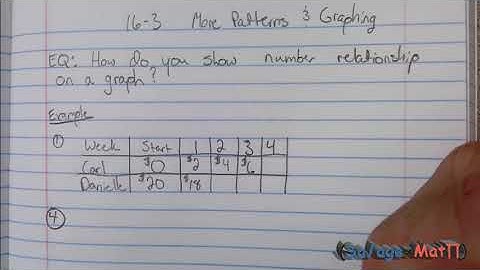 16-3 More Patterns & Graphing
EQ: How do you show number relationship
on a graph?
Example
① Week Start 1 2 3 4
Carl $0 $2 $4 $6
Danielle $20 $18
④
Savage Math